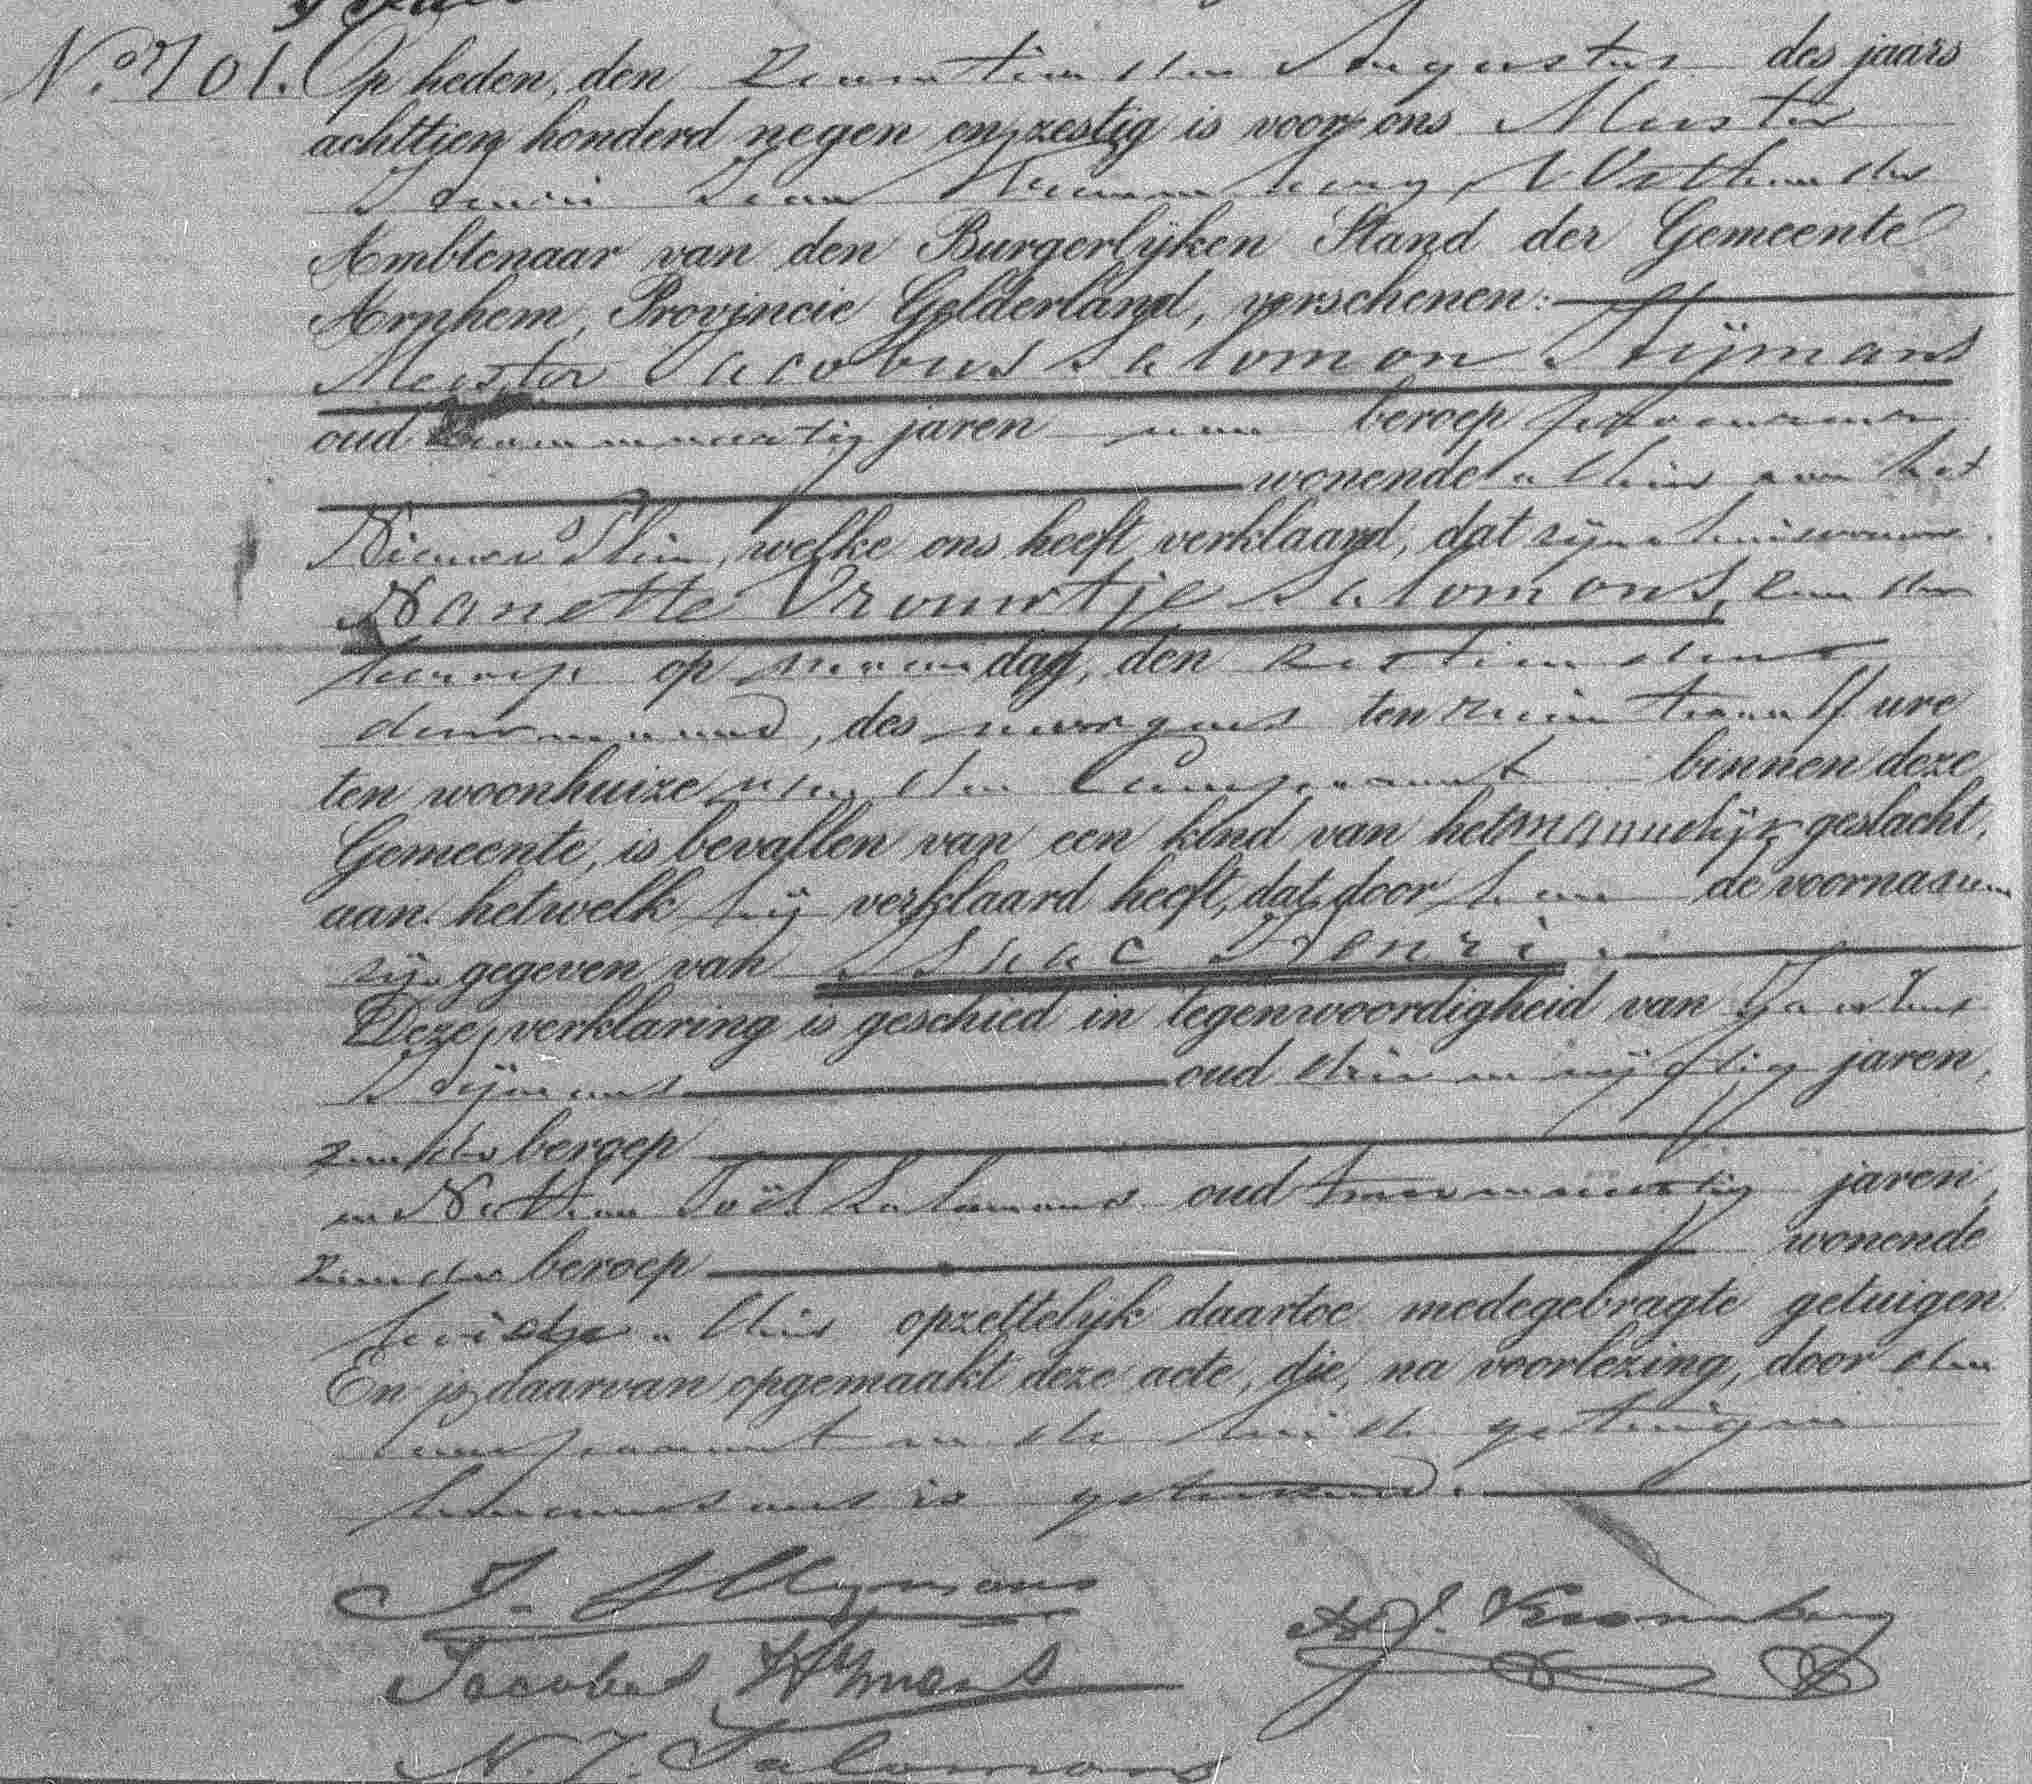 No. 701. Op heden, den zeventienden Augustus des jaars
achttien honderd negen en zestig is voor ons Meester
Henri Jean Kronenberg, Wethouder
Ambtenaar van den Burgerlijken Stand der Gemeente
Arnhem, Provincie Gelderland, verschenen:
Meester Jacobus Salomon Heijmans
oud jaren van beroep
wonende alhier aan het
Nieuwe Plein, welke ons heeft verklaard, dat zijne huisvrouw
Nanette Vrouwtje Salomons, zonder
beroep op maandag, den zestienden
dezer maand, des morgens ten ruim twaalf ure
ten woonhuize van den Comparant binnen deze
Gemeente, is bevallen van een kind van het mannelijk geslacht,
aan hetwelk hij verklaard heeft, dat door hem de voornamen
zijn gegeven van Isaac Henri.
Deze verklaring is geschied in tegenwoordigheid van Jacobus
Heijmans oud drie en vijftig jaren,
zonder beroep
en Nathan Joël Salomons oud jaren,
zonder beroep wonende
beide alhier opzettelijk daartoe medegebragte getuigen
En is daarvan opgemaakt deze acte, die, na voorlezing, door den
comparant en de beide getuigen
benevens ons is geteekend.
J. S. Heymans
Jacobus Heymans
Kronenberg
N. J. Salomons